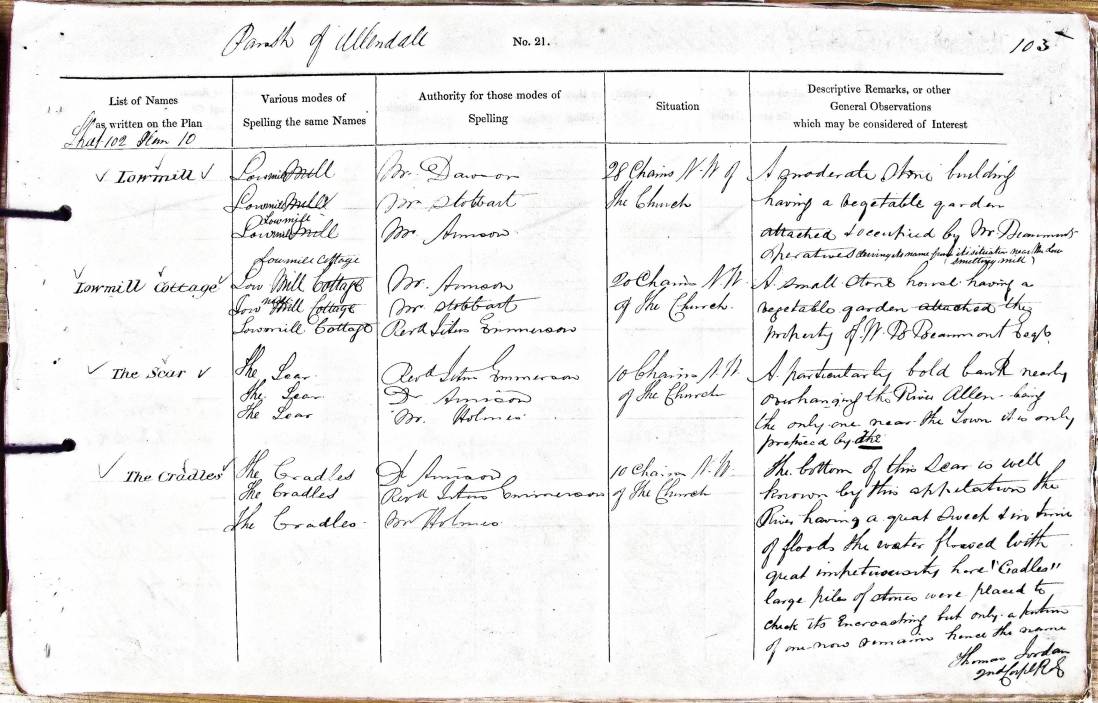 Parish of Allendale
No. 21.
103
List of Names
as written on the Plan
Various modes of
Spelling the same Names
Authority for those modes of
Spelling
Situation
Descriptive Remarks, or other
General Observations
which may be considered of Interest
Sheet 102 Plan 10
Lowmill
Lowmill Mill
Lowmill Mill
Lowmill
Lowmill Mill
Mr. Dawson
Mr Stobbart
Mr Arnison
28 Chains N.W. of
The Church
A moderate stone building
having a vegetable garden
attached & occupied by Mr Beaumont's
operatives deriving its name from its situation near the Low
smelting mill
Lowmill Cottage
Lowmill Cottage
Low Mill Cottage
Low Mill Cottage
Lowmill Cottage
Mr. Arnison
Mr Stobbart
Revd Titus Emmerson
20 Chains N.W.
of The Church.
A small stone house having a
vegetable garden attached the
property of W B Beaumont Esqr.
The Scar
The Scar
The Scar
The Scar
Revd Titus Emmerson
Dr Arnison
Mr. Holmes
10 Chains N.W.
of The Church
A particularly bold bank nearly
overhanging the River Allen being
the only one near the Town it is only
prefixed by the
The Cradles
The Cradles
The Cradles
The Cradles
Dr Arnison
Revd Titus Emmerson
Mr Holmes
10 Chains N.W.
of The Church
The bottom of this Scar is well
known by this appelation the
River having a great sweep & in time
of floods the water flowed with
great impetuousity here "Cradles"
large piles of stones were placed to
check its Encroaching but only a portion
of one now remain hence the name
Thomas Jordan
2nd Corpl R.E